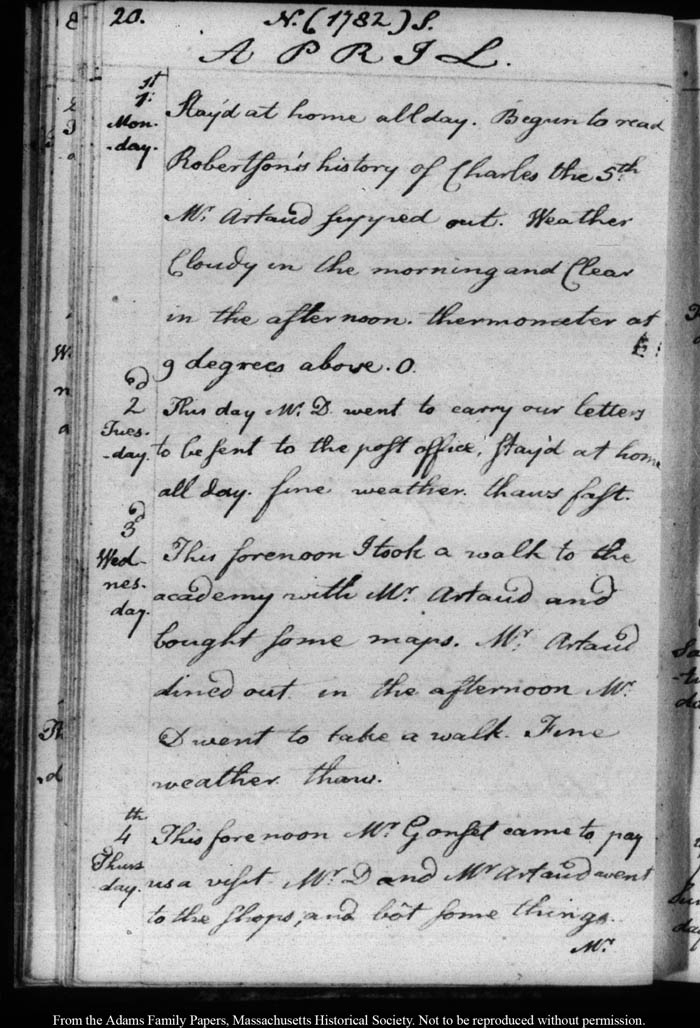 20. N. (1782) S.
APRIL.
1st
Mon-
-day.
Stay'd at home all day. Begun to read
Robertson's history of Charles the 5th.
Mr. Artaud supped out. Weather
Cloudy in the morning and Clear
in the afternoon. thermometer at
9 degrees above. 0.
2d
Tues-
-day.
This day Mr. D. went to carry our letters
to be sent to the post office, stay'd at home
all day. fine weather. thaws fast.
3d
Wed-
nes-
day.
This forenoon I took a walk to the
academy with Mr. Artaud and
bought some maps. Mr. Artaud
dined out in the afternoon Mr.
D went to take a walk. Fine
weather. thaw.
4th
Thurs
day.
This forenoon Mr. Gonsel came to pay
us a visit. Mr. D and Mr Artaud went
to the shops, and bôt some things.
Mr.
From the Adams Family Papers, Massachusetts Historical Society. Not to be reproduced without permission.